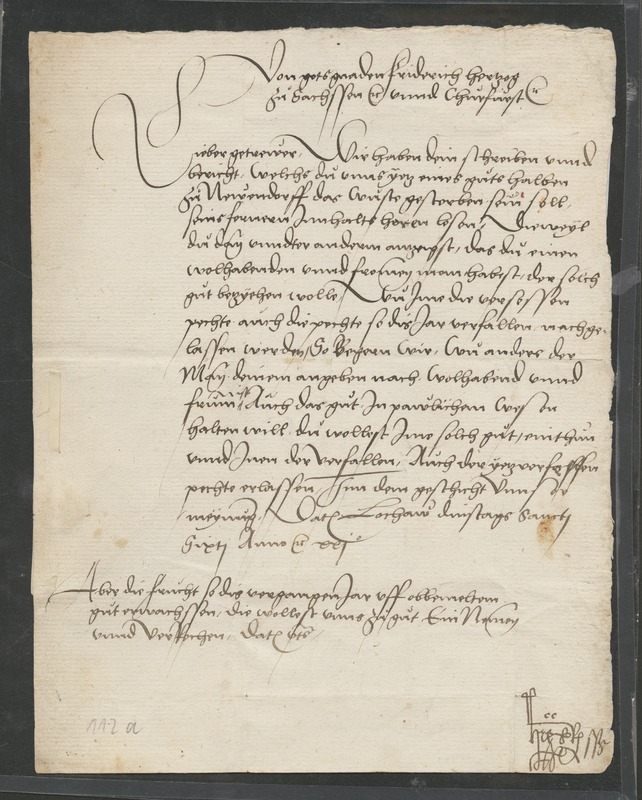 Von gots gnaden Friderich Hertzog
zu Sachssen ꝛc vnnd Churfurst ꝛc
Lieber getrewer, Wir haben dein schreiben vnnd
bericht, welchs du vnns ytz eines guts halben
zu Newendorff das wuste gestorben sein soll
seins fernern Innhalts horen lesen, Dieweyl
du dan vnndter anderm anzeigst, das du einen
wolhabenden vnnd fromen man habist, der solch
gut bezyehen wolle, Wu Ime die versessen
pechte auch die pechte so dis Jar verfallen, nachge-
lassen werden, So Begern wir, Wu anders der
Man deinem angeben nach wolhabend vnnd
frum ist, Auch das gut In pawlichem wesen
halten will, du wollest Ime solch gut, einthun
vnnd Inen der verfallen, Auch der ytz versessen
pechte erlassen, Inn dem geschicht vnns
meynung, Dat Lochaw dinstags Sancti
Sixti Anno ꝛc xxj
Aber die frucht so dis vergangen Jar vff obbemeltem
gut erwachssen, die wollest vnns zu gut Ein Nemen
vnnd verrechen, Dat vts
112 a